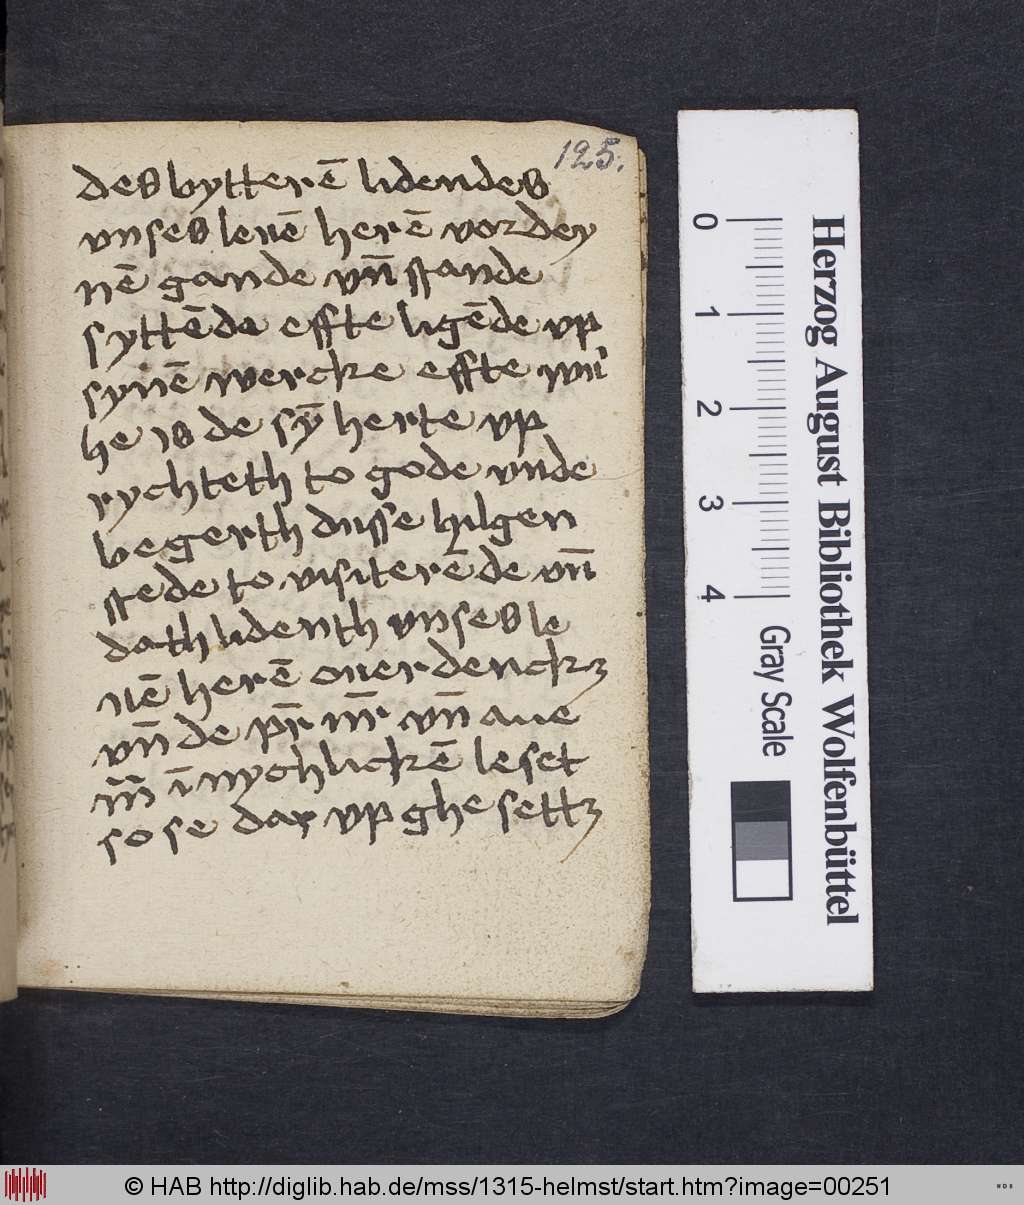 125.
des bytterē lidendes
vnses leuē herē vordey
nē gande vn̄ stande
syttēde effte ligēde vp
synē wercke effte wur
he is de sȳ herte vp
rychteth to gode vnde
begerth dusse hilgen
stede to visiterēde vn̄
dath lidenth vnses le
uē herē ouerdenckꝫ
vn̄ de pr̄ nr̄ vn̄ aue
m̄ īnychlickē leset
so se dar vp ghe settꝫ
0 1 2 3 4
Gray Scale
Herzog August Bibliothek Wolfenbüttel
© HAB http://diglib.hab.de/mss/1315-helmst/start.htm?image=00251